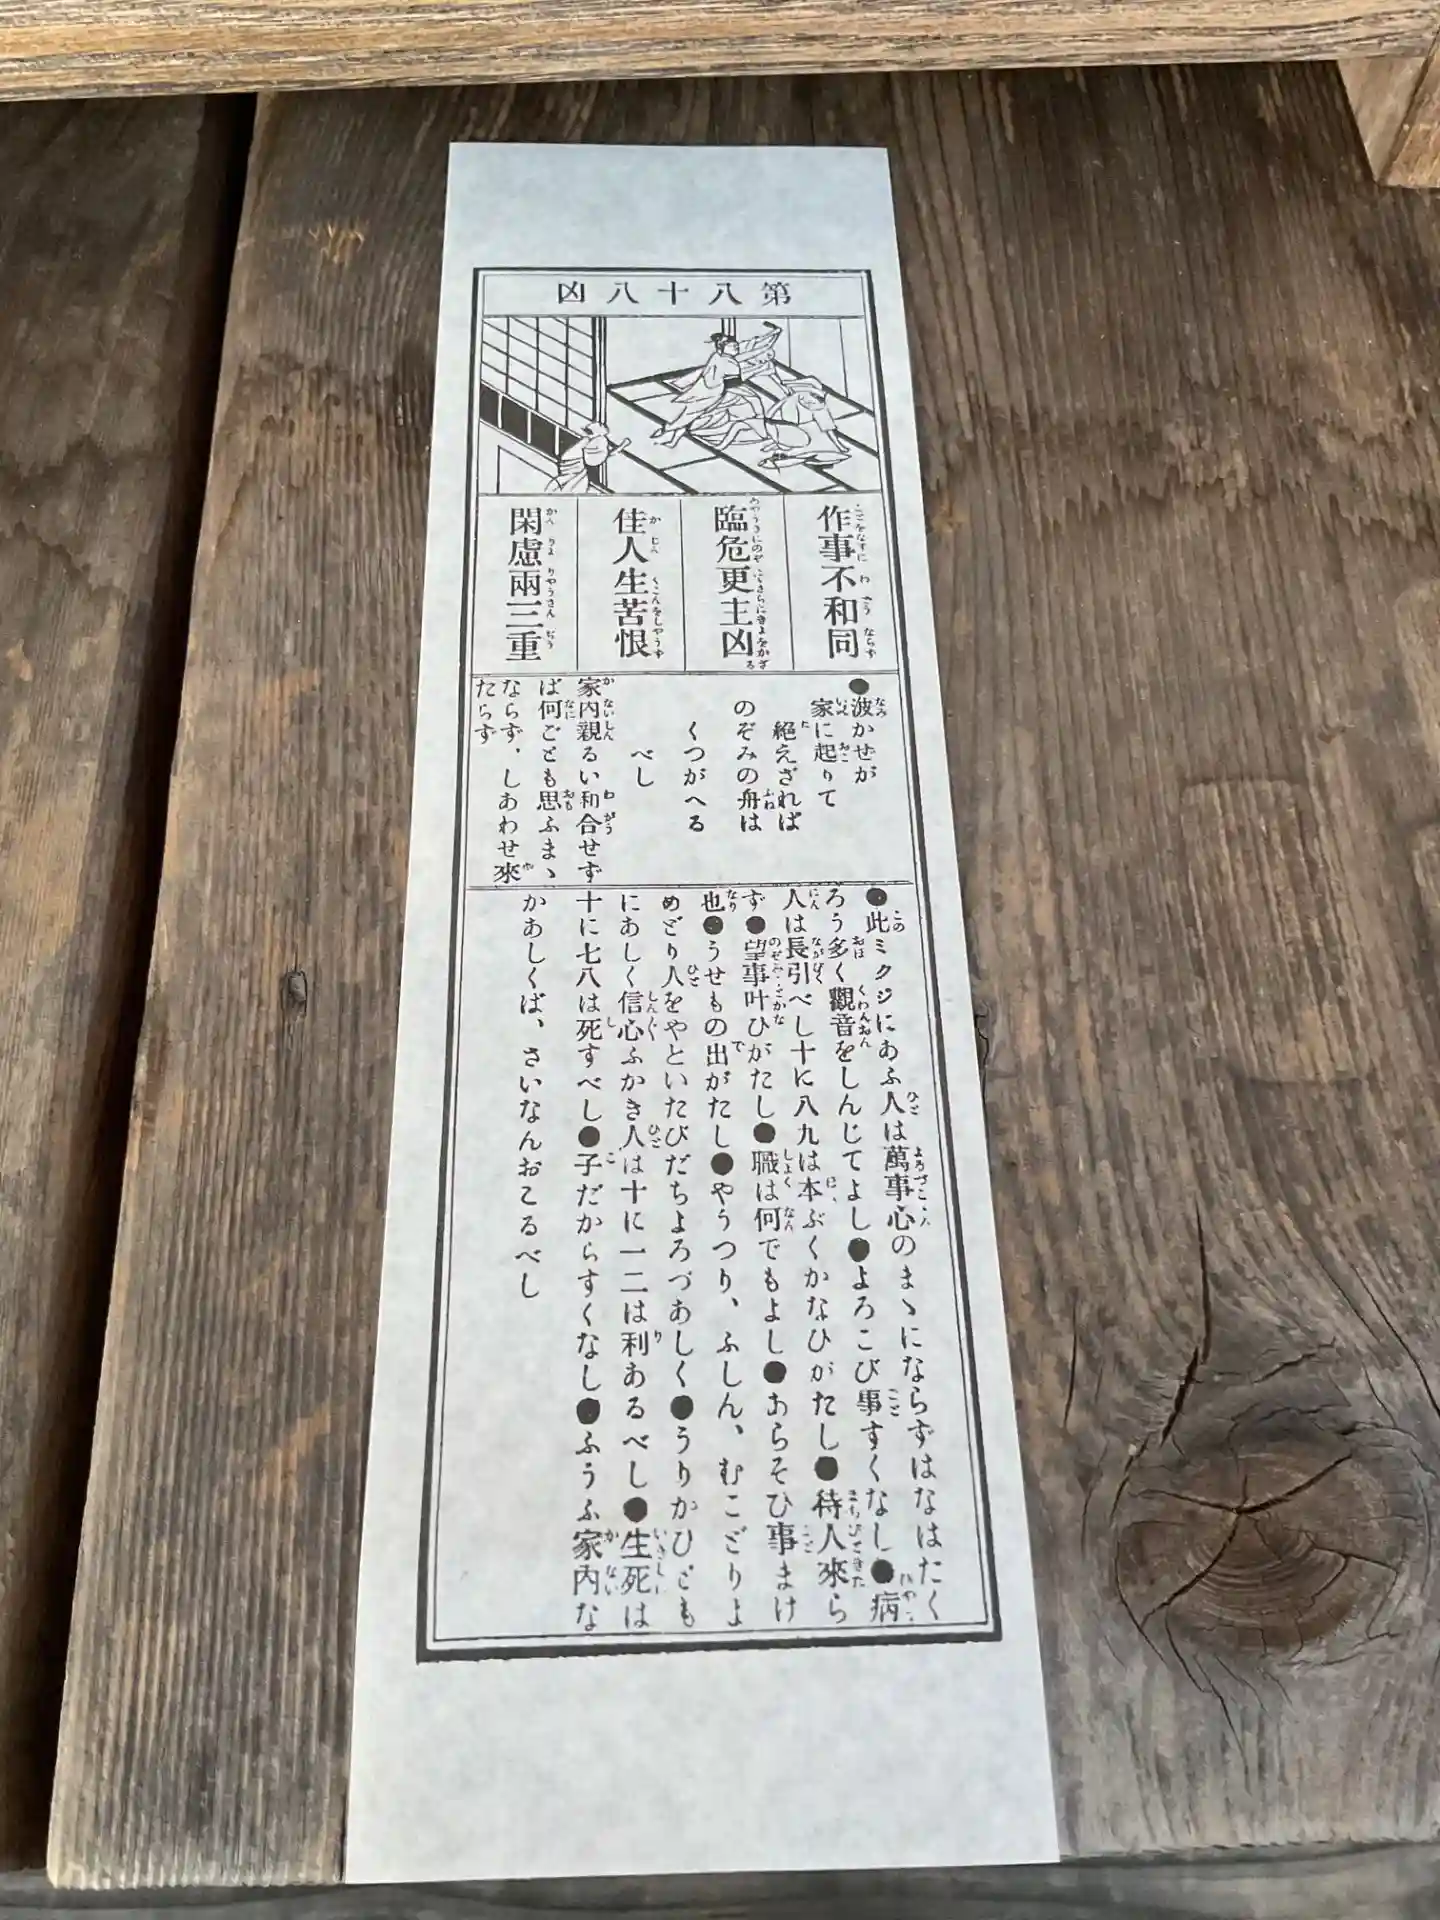 第八十八凶
作事不和同
臨危更主凶
佳人生苦恨
閑慮兩三重
●波かせが
家に起りて
絶えざれば
のぞみの舟は
くつがへる
べし
家内親るい和合せず
ば何ごとも思ふまゝ
ならず、しあわせ來
たらず
●此ミクジにあふ人は萬事心のまゝにならずはなはたく
ろう多く觀音をしんじてよし●よろこび事すくなし●病
人は長引べし十に八九は本ぶくかなひがたし●待人來ら
ず●望事叶ひがたし●職は何でもよし●あらそひ事まけ
也●うせもの出がたし●やうつり、ふしん、むこどりよ
めどり人をやといたびだちよろづあしく●うりかひとも
にあしく信心ふかき人は十に一二は利あるべし●生死は
十に七八は死すべし●子だからすくなし●ふうふ家内な
かあしくば、さいなんおこるべし